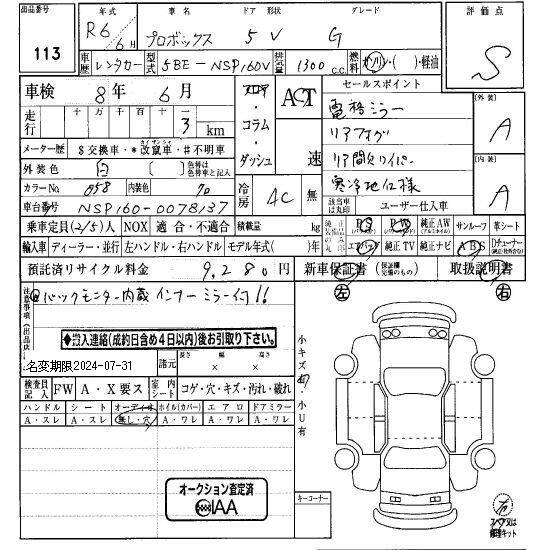 出品番号
113
年式
R6年 6月
車名
プロボックス
ドア 形状
5 V
グレード
G
評価点
S
車歴
レンタカー
型式
5BE-NSP160V
排気量
1300 C.C.
燃料
ガソリン・( )・軽油
車検
8年 6月
走行
十万 万 千 百 十 一
3 km
メーター歴
$交換車・*改竄車・#不明車
外装色
白
色替は色替車と記入
カラーNo.
058
内装色
車台番号
NSP160-0078137
コラム・
ダッシュ
AT
速
冷房
AC
無
セールスポイント
電格ミラー
リアフォグ
リア間欠ワイパー
寒冷地仕様
該当車は丸印
ユーザー仕入車
外装
A
内装
A
乗車定員(2/5)人
NOX 適合・不適合
積載量
kg
PS
PW
純正AW
サンルーフ
革シート
輸入車
ディーラー・並行
左ハンドル・右ハンドル
モデル年式( )年
エアバッグ
純正TV
純正ナビ
ABS
預託済リサイクル料金
9,280円
新車保証書
取扱説明書
注意事項(出品店)
バックモニター内蔵インナーミラー付!!
搬入連絡(成約日含め4日以内)後お引取り下さい。
名変期限2024-07-31
諸元
長さ × 幅 × 高さ
検査員記入
FW
A・X要ス
室内シート
コゲ・穴・キズ・汚れ・破れ
ハンドル
シート
オーディオ
ホイル(カバー)
エアロ
ドアミラー
A・スレ
A・スレ
無し・穴
A・ワレ
A・ワレ
A・ワレ
オークション査定済
IAA
小キズ有・小U有
キーコーナー
左
右
スペア又は
修理キット